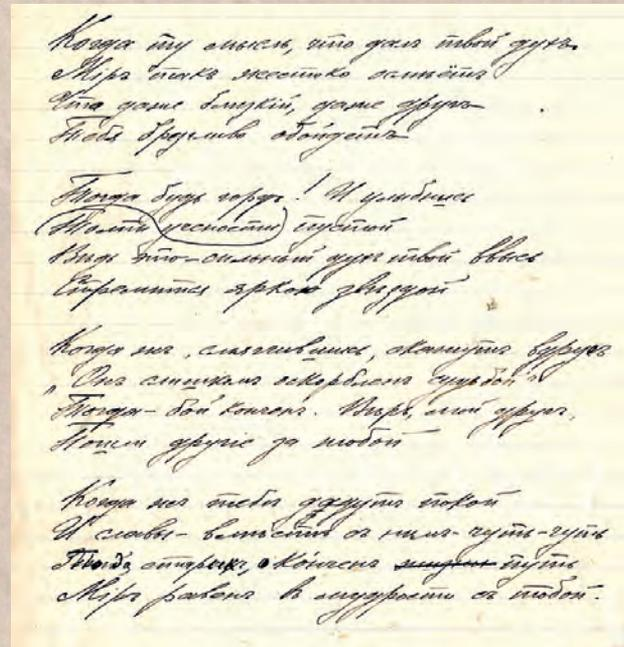 Когда ту мысль, что далъ твой духъ
Міръ такъ жестоко осмѣётъ
Что даже близкій, даже другъ
Тебя брезгливо обойдетъ
Тогда будь гордъ! И улыбнись
Толпы пустой
Вѣдь это-сильный духъ твой ввысь
Стремится яркою звѣздой
Когда же, смягчившись, скажутъ вдругъ
"Онъ слишкомъ оскорбленъ судьбой"
Тогда-бой конченъ. Вѣрь, мой другъ,
Пошли другіе за тобой
Когда же тебѣ дадутъ покой
И славы-вмѣстѣ съ нимъ-чуть-чуть
конченъ путь
Міръ равенъ в мудрости съ тобой.